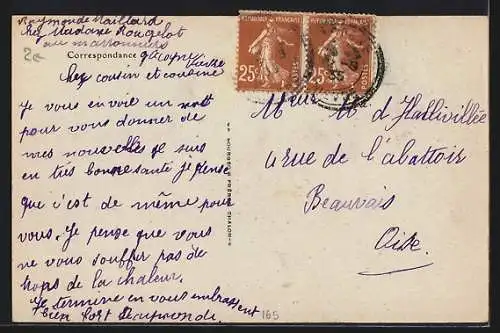 Raymonde Maillard
chez Madame Rougelot
aux marronniers
Correspondance
Cher cousin et cousine
Je vous envoie un mot
pour vous donner de
mes nouvelles Je suis
en très bonne santé je pense
que c'est de même pour
vous. Je pense que vous
ne vous souffer pas de
trops de la chaleur.
Je termine en vous embrassant
bien fort Raymonde.
REPUBLIQUE FRANÇAISE
25c
POSTES
REPUBLIQUE FRANÇAISE
25c
POSTES
M et Mme d'Hallivillée
4 rue de l'abattoir
Beauvais
Oise.
165